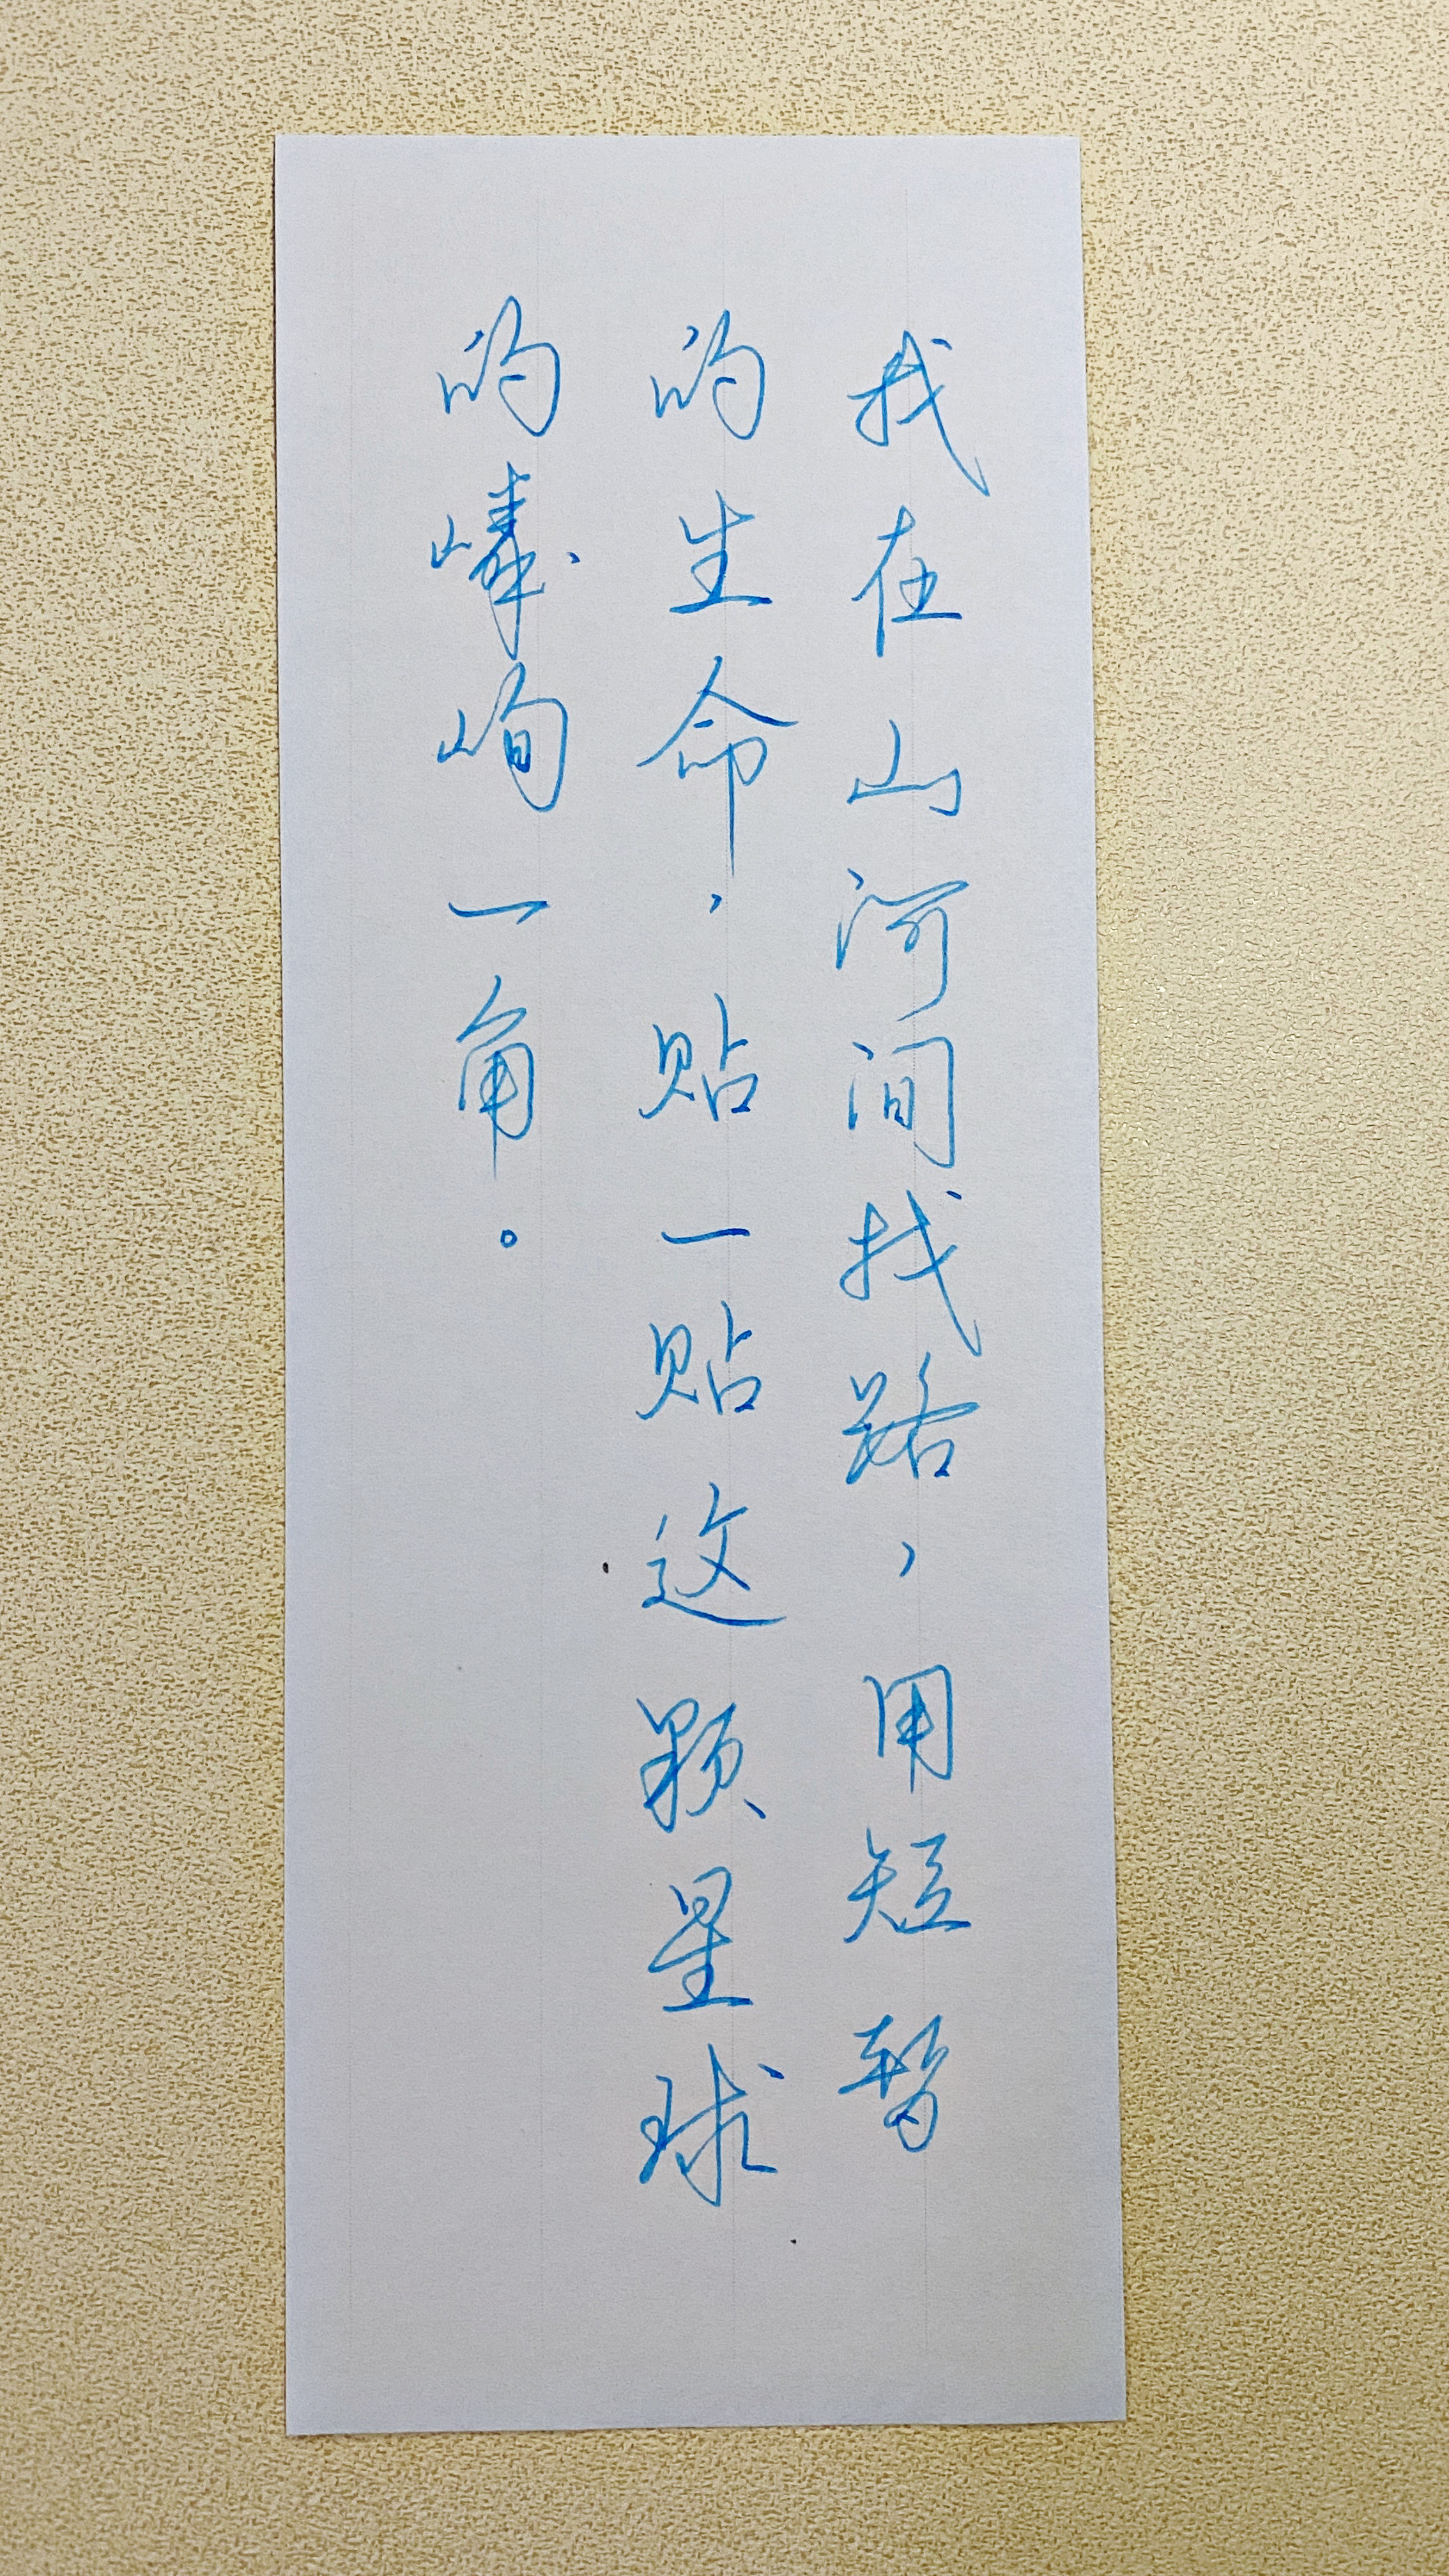 我在山河间找路，用短暂
的生命，贴一贴这颗星球
的嶙峋一角。